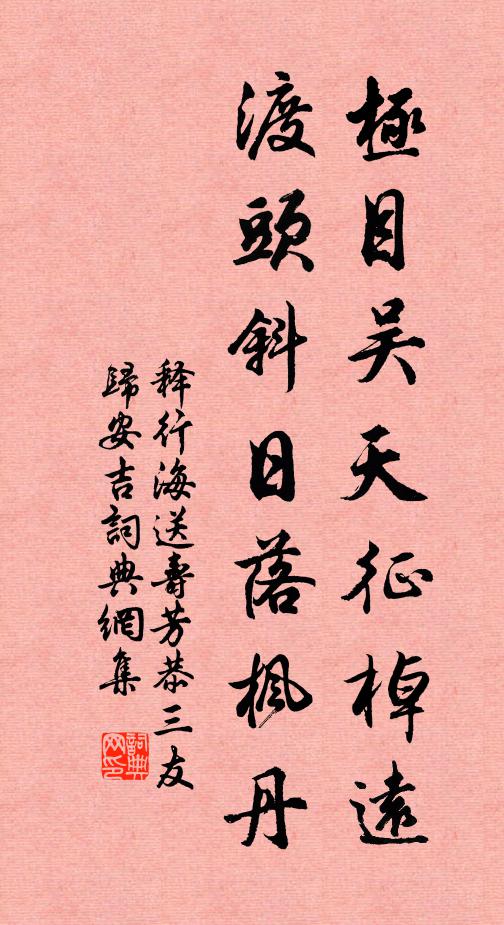 極目吴天征棹遠
渡頭斜日落楓丹
释行海送壽芳恭三友
歸安吉詞典網集
詞典网印